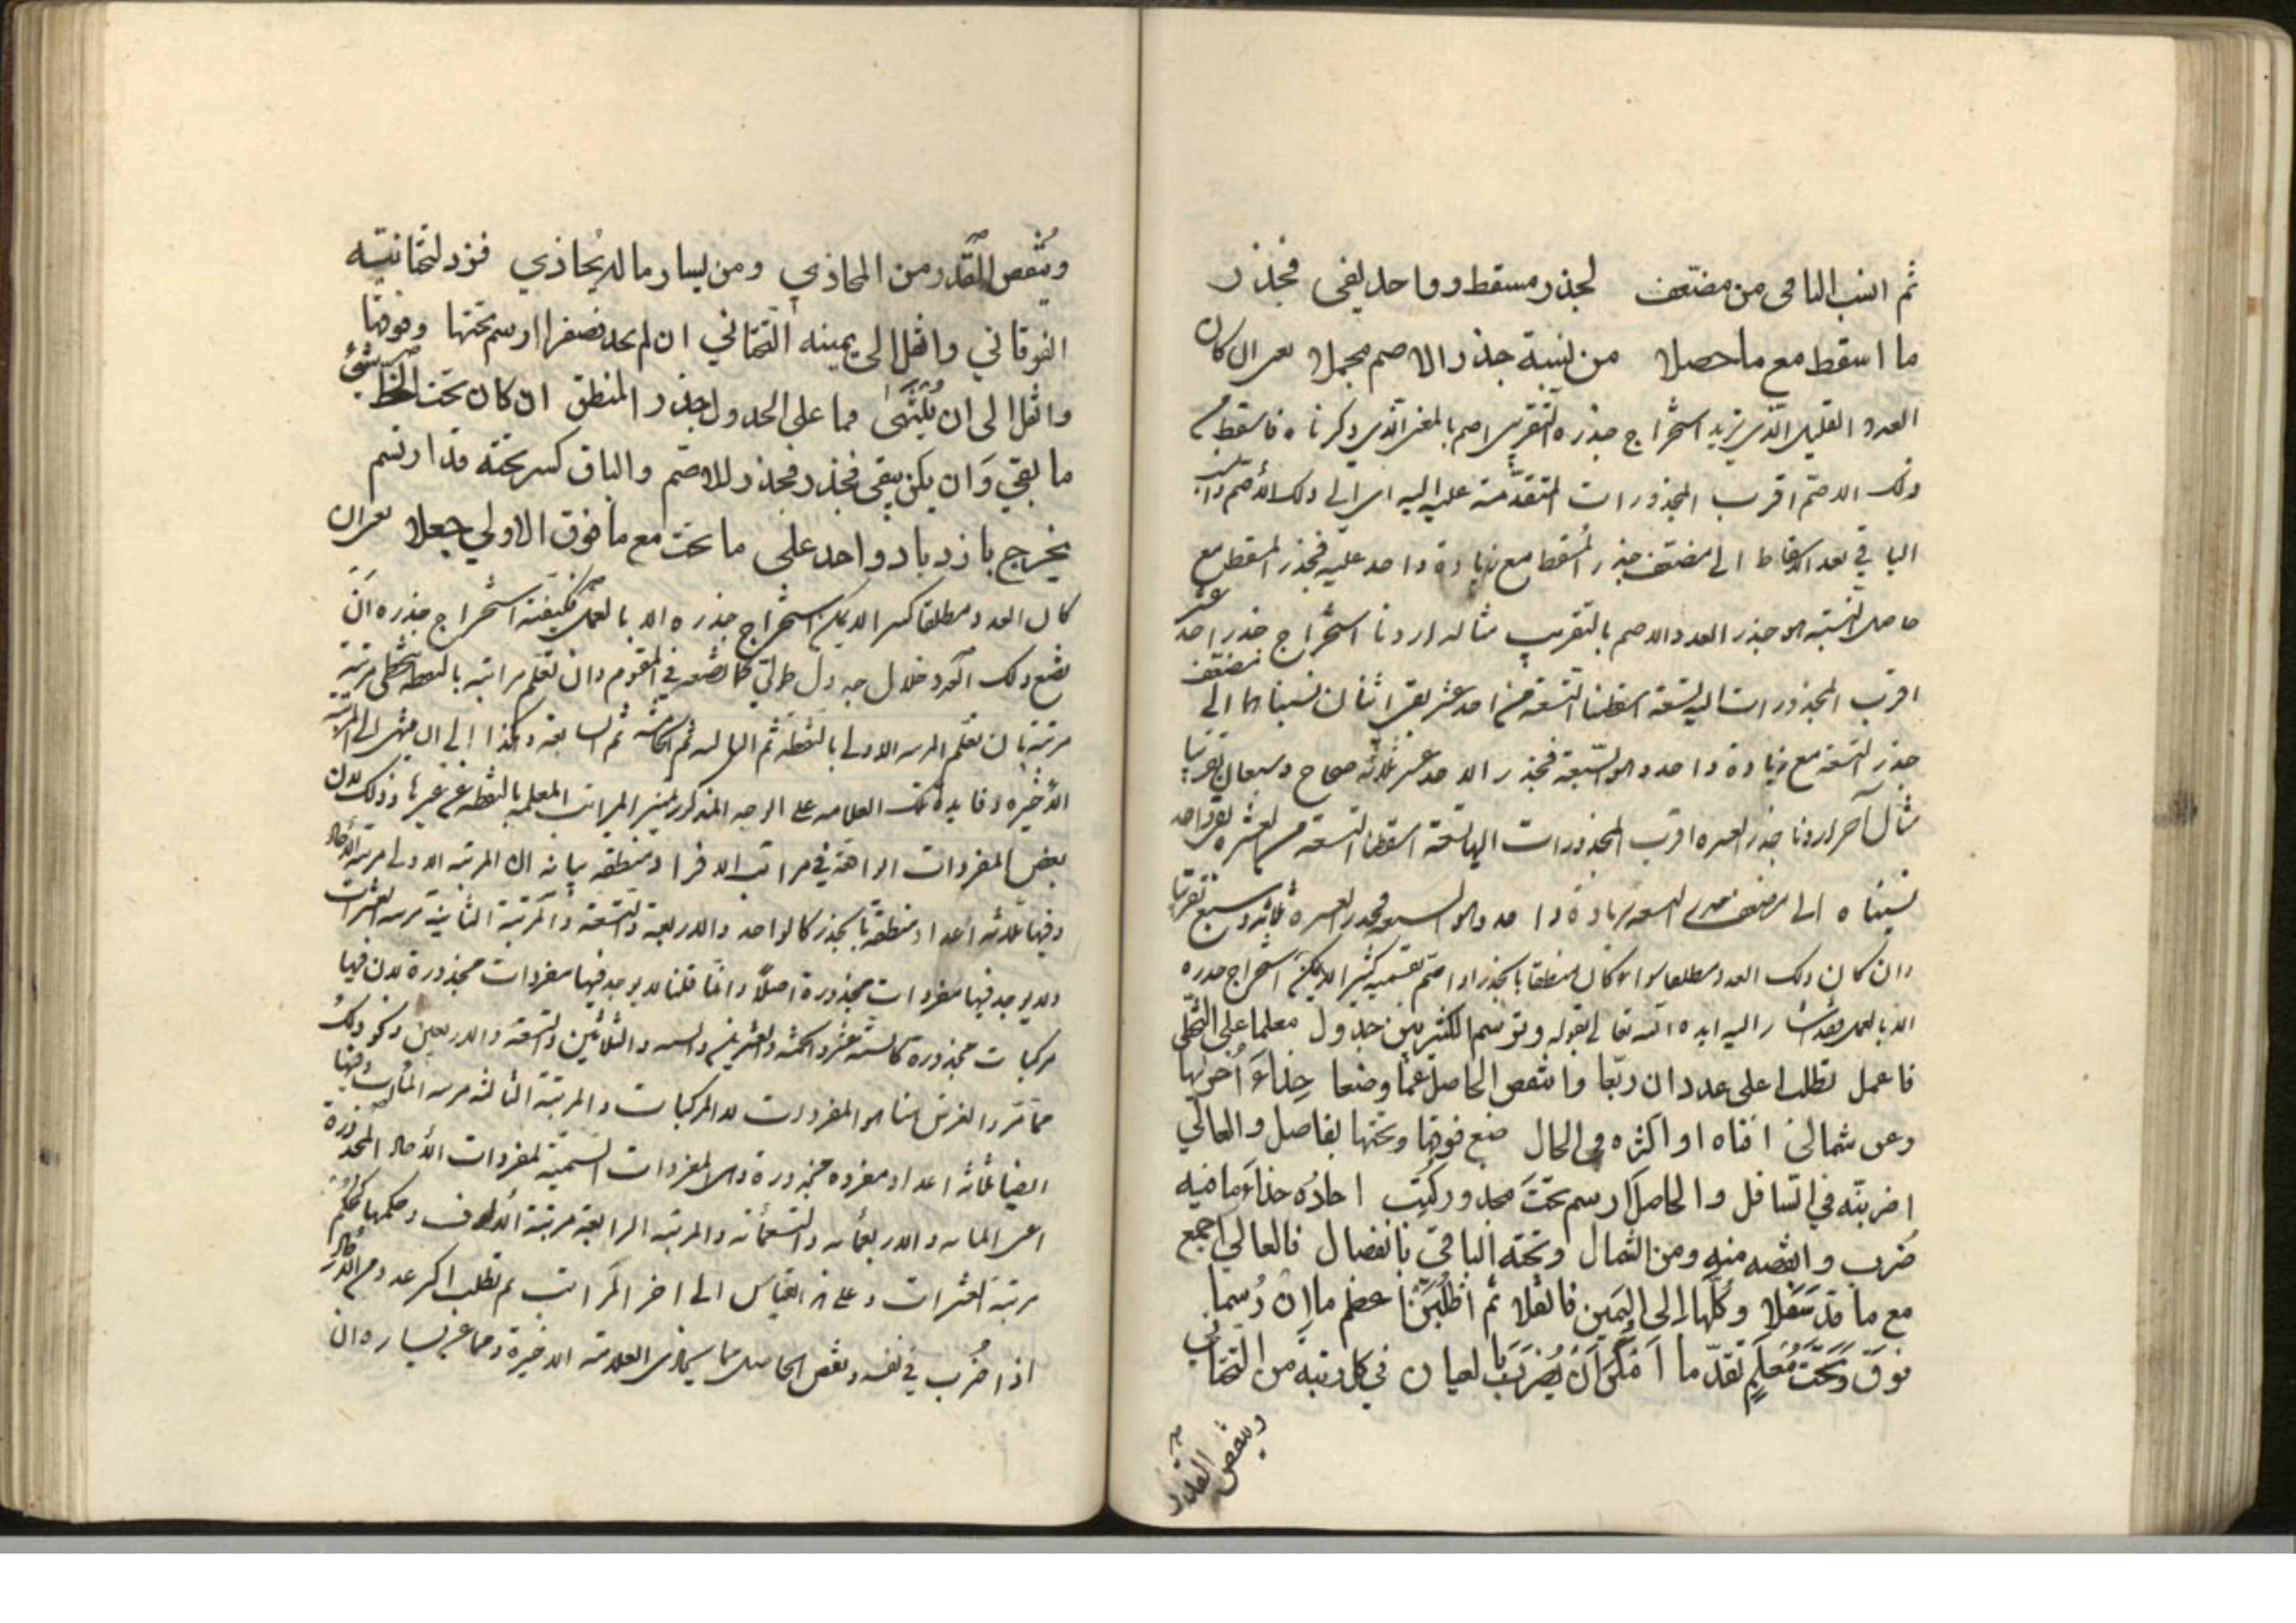 ثم انسب الباقي من مضعف لجذر مسقط وواحد يفي فجذر
ما اسقط مع ما حصلا من نسبة جذر الاصم مجملا يعني ان كان
العدد القليل الذي نريد استخراج جذره التقريبي اصم بالمعنى الذي ذكرناه فاسقط من
ذلك الاصم اقرب المجذورات المتقدمة عليه اليه اي الى ذلك الاصم وانسب
الباقي بعد الاسقاط الى مضعف جذر المسقط مع زيادة واحد عليه فجذر المسقط مع
حاصل النسبة هو جذر العدد الاصم بالتقريب مثاله اردنا استخراج جذر احد عشر
اقرب المجذورات اليه تسعة اسقطنا التسعة من احد عشر بقي اثنان نسبناهما الى مضعف
جذر التسعة مع زيادة واحد وهو السبعة فجذر الاحد عشر ثلاثة صحاح وسبعان تقريبا
مثال آخر اردنا جذر العشرة اقرب المجذورات اليها تسعة اسقطنا التسعة من العشرة بقي واحد
نسبناه الى مضعف جذر التسعة بزيادة واحد وهو السبعة فجذر العشرة ثلاثة وسبع تقريبا
وان كان ذلك العدد مطلقا سواء كان منطقا بالجذر او اصم كثيرا لا يمكن استخراج جذره
الا بالعمل فقد اشار اليه ايده الله تعالى بقوله وترسم الكثير بين جدول معلما على التخطي
فاعمل تطلب اعلى عدد ان ربعا وانتقص الحاصل عما وضعا حذاء اخراها
وعن شمال افناه او اكثره في الحال ضع فوقها وتحتها بفاصل والعالي
اضربنه في السافل والحاصل ارسم تحت محدو ركبت احاده حذاء ما فيه
ضرب وانقصه منه ومن الشمال وتحته الباقي بانفصال فالعالي اجمع
مع ما قد سفلا وكلها الى اليمين فانقلا ثم اطلبن اعظم ما ان رسما
فوق وتحت معلم تقدما امكن ان يضرب بالعيان في كل رتبة من التحتاني
وينقص المقدر
وينقص المقدر من المحاذي ومن يسار ما له يحاذي فزد لتحتانيه
الفوقاني وانقل الى يمينه التحتاني ان لم تجد فصفرا ارسم تحتها وفوقها
وانقل الى ان ينتهى فما على الجدول جذر المنطق ان كان تحت الخط شيء
ما بقي وان يكن يبقى فجذر للاصم والباق كسر تحته قد ارتسم
يخرج بازدياد واحد على ما تحت مع ما فوق الاولى جعلا يعني ان
كان العدد مطلقا كثيرا لا يمكن استخراج جذره الا بالعمل فكيفية استخراج جذره ان
تضع ذلك العدد خلال جدول طولي كما تضعه في المقسوم وان تعلم مراتبه بالنقطة بتخطي مرتبة
مرتبة بان تعلم المرتبة الاولى بالنقطة ثم الثالثة ثم الخامسة ثم السابعة وهكذا الى ان ينتهي الى المرتبة
الاخيرة وفايدة تلك العلامة على الوجه المذكور تمييز المراتب المعلمة بالنقطة عن غيرها وذلك لان
بعض المفردات الواقعة في مراتب الافراد منطقة بيانه ان المرتبة الاولى مرتبة الآحاد
وفيها ثلاثة اعداد منطقة بالجذر كالواحد والاربعة والتسعة والمرتبة الثانية مرتبة العشرات
ولا يوجد فيها مفردات مجذورة اصلا وانما قلنا لا يوجد فيها مفردات مجذورة لان فيها
مركبات مجذورة كالستة عشر والخمسة والعشرين والستة والثلاثين والتسعة والاربعين ونحو ذلك
مما مر والغرض هنا هو المفردات لا المركبات والمرتبة الثالثة مرتبة المئات وفيها
ايضا ثلاثة اعداد مفردة مجذورة وهي المفردات السمية لمفردات الآحاد المجذورة
اعني المائة والاربعمائة والتسعمائة والمرتبة الرابعة مرتبة الالوف وحكمها كحكم
مرتبة العشرات وعلى هذا القياس الى اخر المراتب ثم تطلب اكثر عدد من الآحاد
اذا ضرب في نفسه ونقص الحاصل مما يحاذي العلامة الاخيرة ومما عن يساره ان